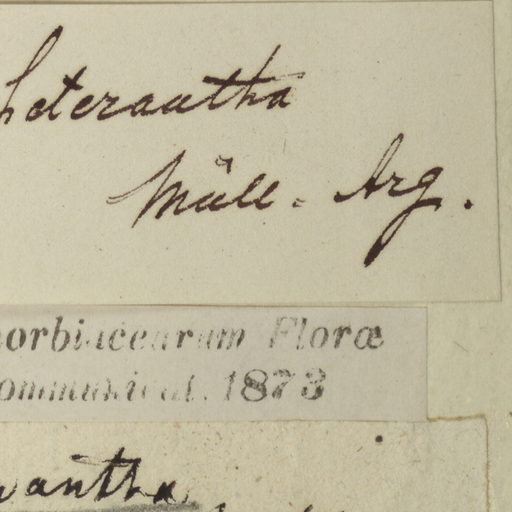 heterantha
Müll. Arg.
orbiacearum Floræ
ommunicat. 1873
antha